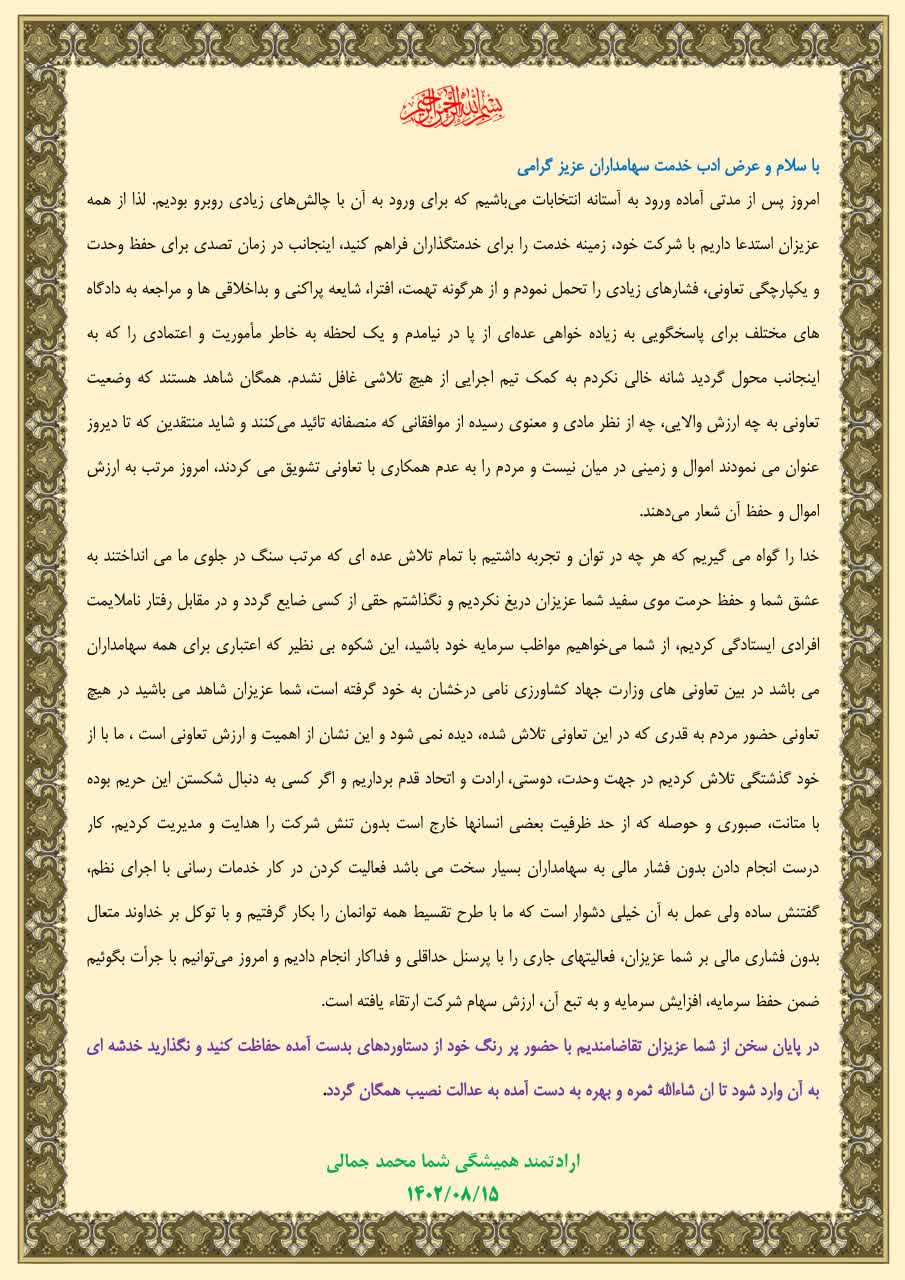 بسم الله الرحمن الرحیم
با سلام و عرض ادب خدمت سهامداران عزیز گرامی
امروز پس از مدتی آماده ورود به آستانه انتخابات می‌باشیم که برای ورود به آن با چالش‌های زیادی روبرو بودیم. لذا از همه
عزیزان استدعا داریم با شرکت خود، زمینه خدمت را برای خدمتگذاران فراهم کنید، اینجانب در زمان تصدی برای حفظ وحدت
و یکپارچگی تعاونی، فشارهای زیادی را تحمل نمودم و از هرگونه تهمت، افترا، شایعه پراکنی و بداخلاقی ها و مراجعه به دادگاه
های مختلف برای پاسخگویی به زیاده خواهی عده‌ای از پا در نیامدم و یک لحظه به خاطر مأموریت و اعتمادی را که به
اینجانب محول گردید شانه خالی نکردم به کمک تیم اجرایی از هیچ تلاشی غافل نشدم. همگان شاهد هستند که وضعیت
تعاونی به چه ارزش والایی، چه از نظر مادی و معنوی رسیده از موافقانی که منصفانه تائید می‌کنند و شاید منتقدین که تا دیروز
عنوان می نمودند اموال و زمینی در میان نیست و مردم را به عدم همکاری با تعاونی تشویق می کردند، امروز مرتب به ارزش
اموال و حفظ آن شعار می‌دهند.
خدا را گواه می گیریم که هر چه در توان و تجربه داشتیم با تمام تلاش عده ای که مرتب سنگ در جلوی ما می انداختند به
عشق شما و حفظ حرمت موی سفید شما عزیزان دریغ نکردیم و نگذاشتم حقی از کسی ضایع گردد و در مقابل رفتار ناملایمت
افرادی ایستادگی کردیم، از شما می‌خواهیم مواظب سرمایه خود باشید، این شکوه بی نظیر که اعتباری برای همه سهامداران
می باشد در بین تعاونی های وزارت جهاد کشاورزی نامی درخشان به خود گرفته است، شما عزیزان شاهد می باشید در هیچ
تعاونی حضور مردم به قدری که در این تعاونی تلاش شده، دیده نمی شود و این نشان از اهمیت و ارزش تعاونی است ، ما با از
خود گذشتگی تلاش کردیم در جهت وحدت، دوستی، ارادت و اتحاد قدم برداریم و اگر کسی به دنبال شکستن این حریم بوده
با متانت، صبوری و حوصله که از حد ظرفیت بعضی انسانها خارج است بدون تنش شرکت را هدایت و مدیریت کردیم. کار
درست انجام دادن بدون فشار مالی به سهامداران بسیار سخت می باشد فعالیت کردن در کار خدمات رسانی با اجرای نظم،
گفتنش ساده ولی عمل به آن خیلی دشوار است که ما با طرح تقسیط همه توانمان را بکار گرفتیم و با توکل بر خداوند متعال
بدون فشاری مالی بر شما عزیزان، فعالیتهای جاری را با پرسنل حداقلی و فداکار انجام دادیم و امروز می‌توانیم با جرأت بگوئیم
ضمن حفظ سرمایه، افزایش سرمایه و به تبع آن، ارزش سهام شرکت ارتقاء یافته است.
در پایان سخن از شما عزیزان تقاضامندیم با حضور پر رنگ خود از دستاوردهای بدست آمده حفاظت کنید و نگذارید خدشه ای
به آن وارد شود تا ان شاءالله ثمره و بهره به دست آمده به عدالت نصیب همگان گردد.
ارادتمند همیشگی شما محمد جمالی
۱۴۰۲/۰۸/۱۵